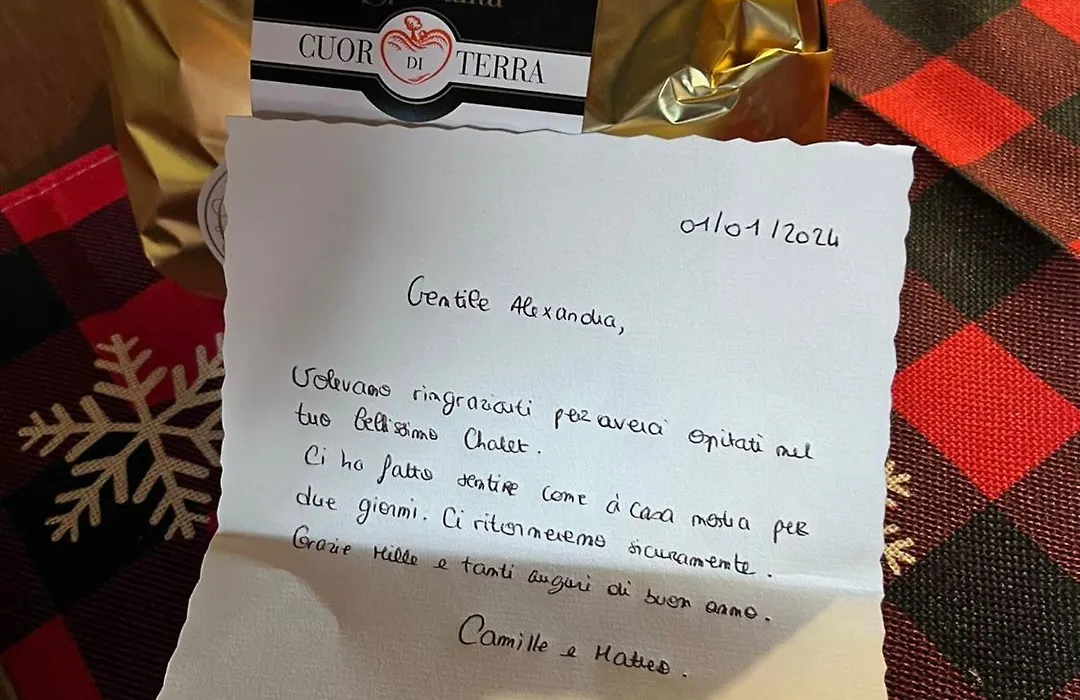 CUOR DI TERRA
01/01/2024
Gentile Alexandra,
Volevamo ringraziarti per averci ospitati nel
tuo bellissimo Chalet.
Ci ha fatto sentire come à casa nostra per
due giorni. Ci ritorneremo sicuramente.
Grazie Mille e tanti auguri di buon anno.
Camille e Matteo.